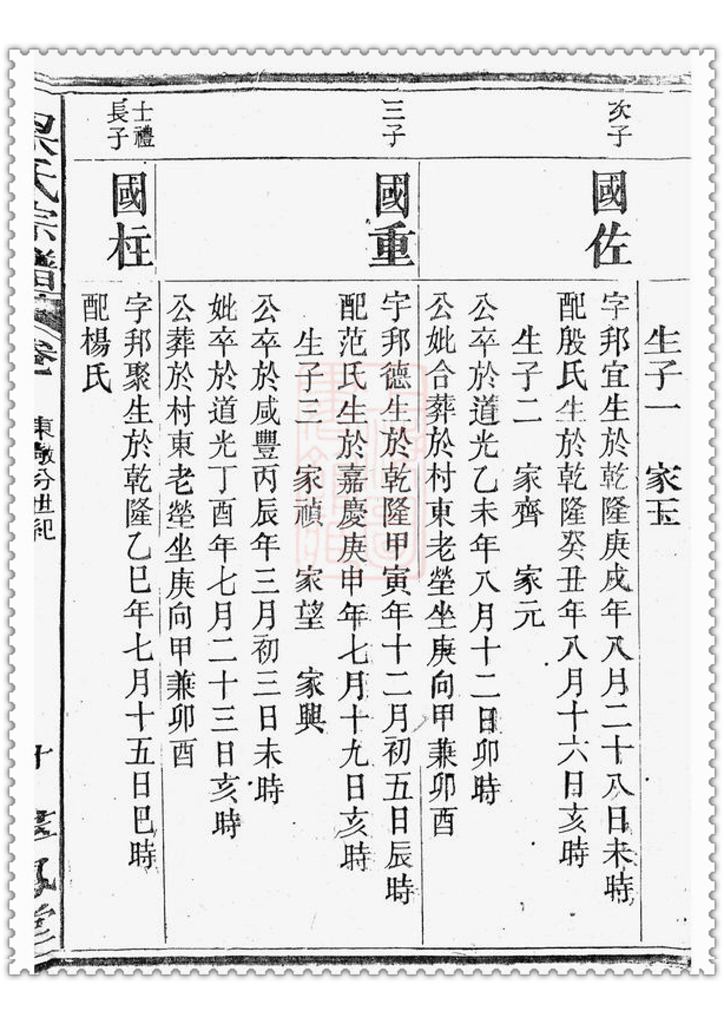 生子一　家玉
次子
國佐
字邦宜生於乾隆庚戌年八月二十八日未時
配殷氏生於乾隆癸丑年八月十六日亥時
生子二　家齊　家元
公卒於道光乙未年八月十二日卯時
公妣合葬於村東老塋坐庚向甲兼卯酉
三子
國重
字邦德生於乾隆甲寅年十二月初五日辰時
配范氏生於嘉慶庚申年七月十九日亥時
生子三　家禎　家望　家興
公卒於咸豐丙辰年三月初三日未時
妣卒於道光丁酉年七月二十三日亥時
公葬於村東老塋坐庚向甲兼卯酉
士禮
長子
國柱
字邦聚生於乾隆乙巳年七月十五日巳時
配楊氏
氏宗譜
卷
東 分世紀
十